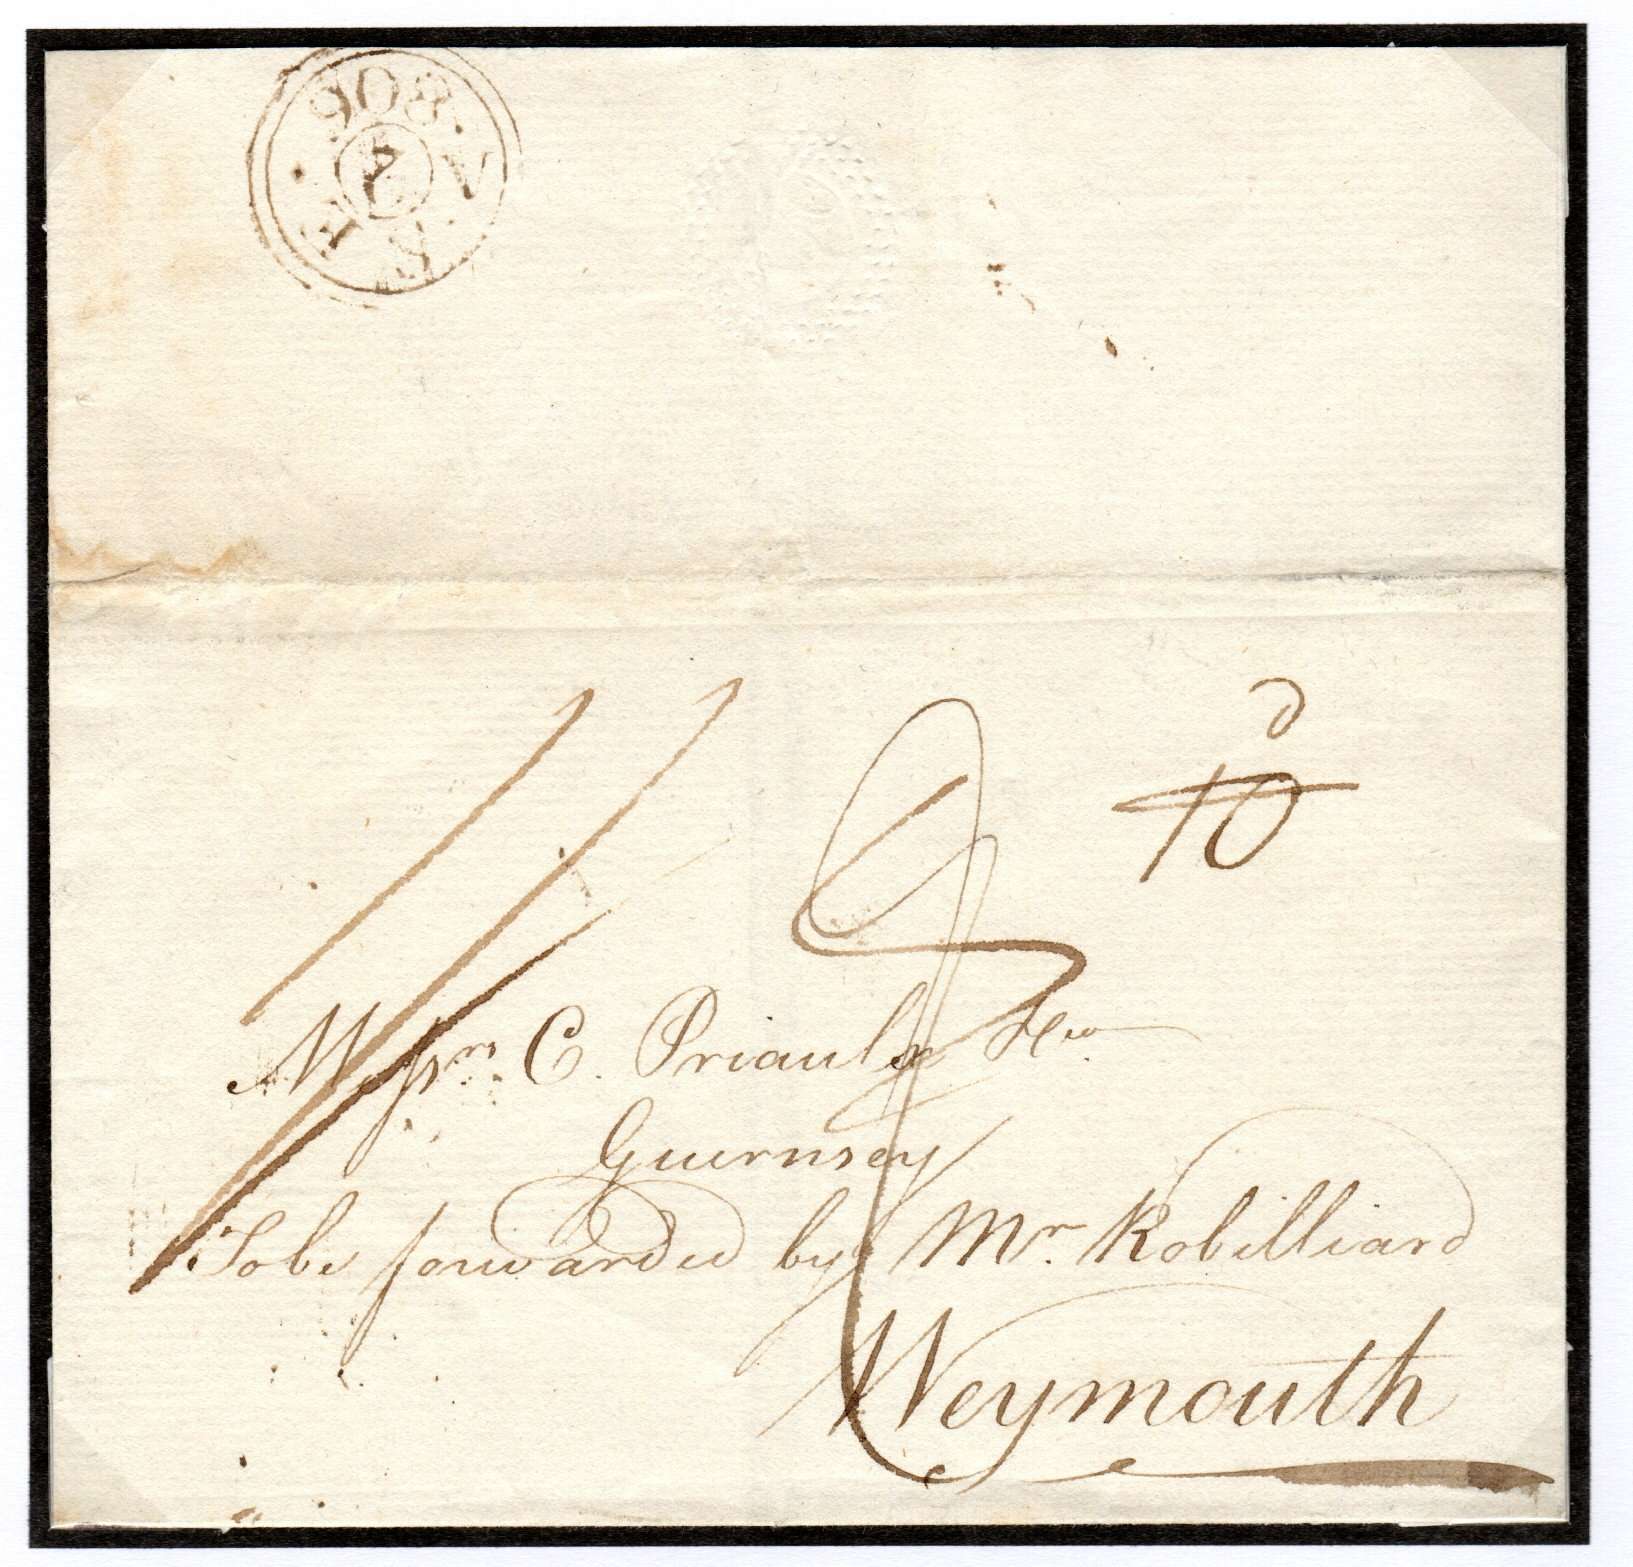 908
7
10 d
Messrs. C. Priaulx & Co
Guernsey
To be forwarded by Mr. Robilliard
Weymouth